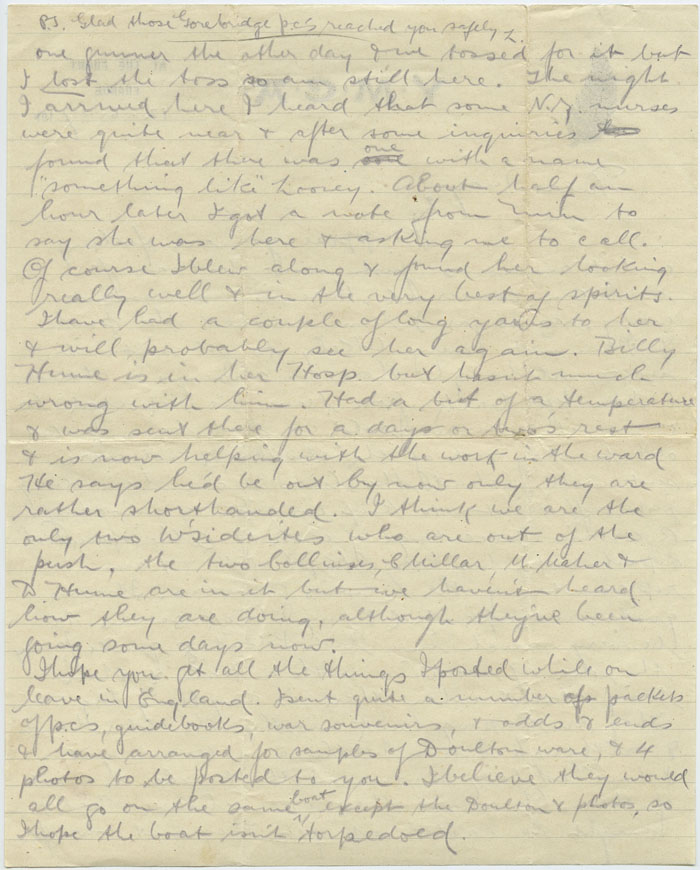 P.S. Glad those Gorebridge p.c's reached you safely
one gunner the other day & we tossed for it but
I lost the toss so am still here. The night
I arrived here I heard that some N.Z. nurses
were quite near & after some inquiries
found that there was one with a name
"something like" Looney. About half an
hour later I got a note from to
say she was here & asking me to call.
Of course I blew along & found her looking
really well & in the very best of spirits.
I have had a couple of long yarns to her
& will probably see her again. Billy
Hume is in her Hosp. but hasn't much
wrong with him. Had a bit of a temperature
& was sent there for a days or two's rest
& is now helping with the work in the ward
He says he'd be out by now only they are
rather shorthanded. I think we are the
only two W'sideites who are out of the
push, the two Collinses, C Millar, M Maher &
D Hume are in it but we haven't heard
how they are doing, although they've been
going some days now.
I hope you get all the things I posted while on
leave in England. I sent quite a number of packets
of p.c's, guidebooks, war souvenirs, & odds & ends
& have arranged for samples of Doulton ware, & 4
photos to be posted to you. I believe they would
all go on the same boat except the Doulton & photos, so
I hope the boat isn't torpedoed.